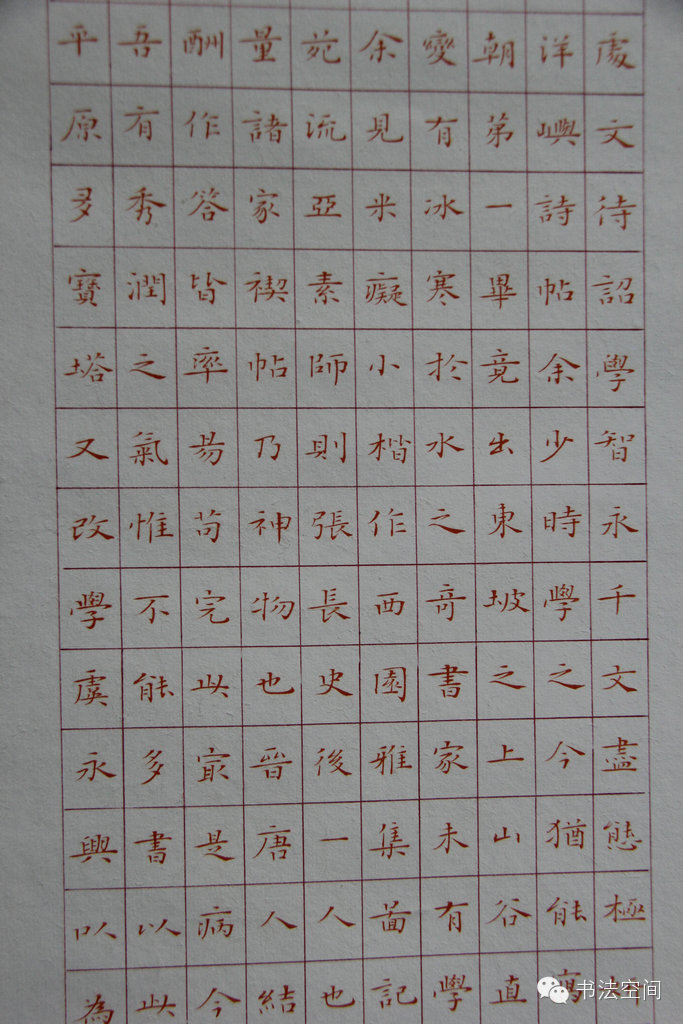 處文待詔學智永千文盡態極
洋嶼詩帖余少時學之今猶能寫
朝第一畢竟出東坡之上山谷直
變有冰寒於水之奇書家未有學
余見米癡小楷作西園雅集圖記
苑流亞素師則張長史後一人也
量諸家禊帖乃神物也晉唐人結
酬作答皆率易苟完此最是病今
吾有秀潤之氣惟不能多書以此
平原多寶塔又改學虞永興以為
书法空间